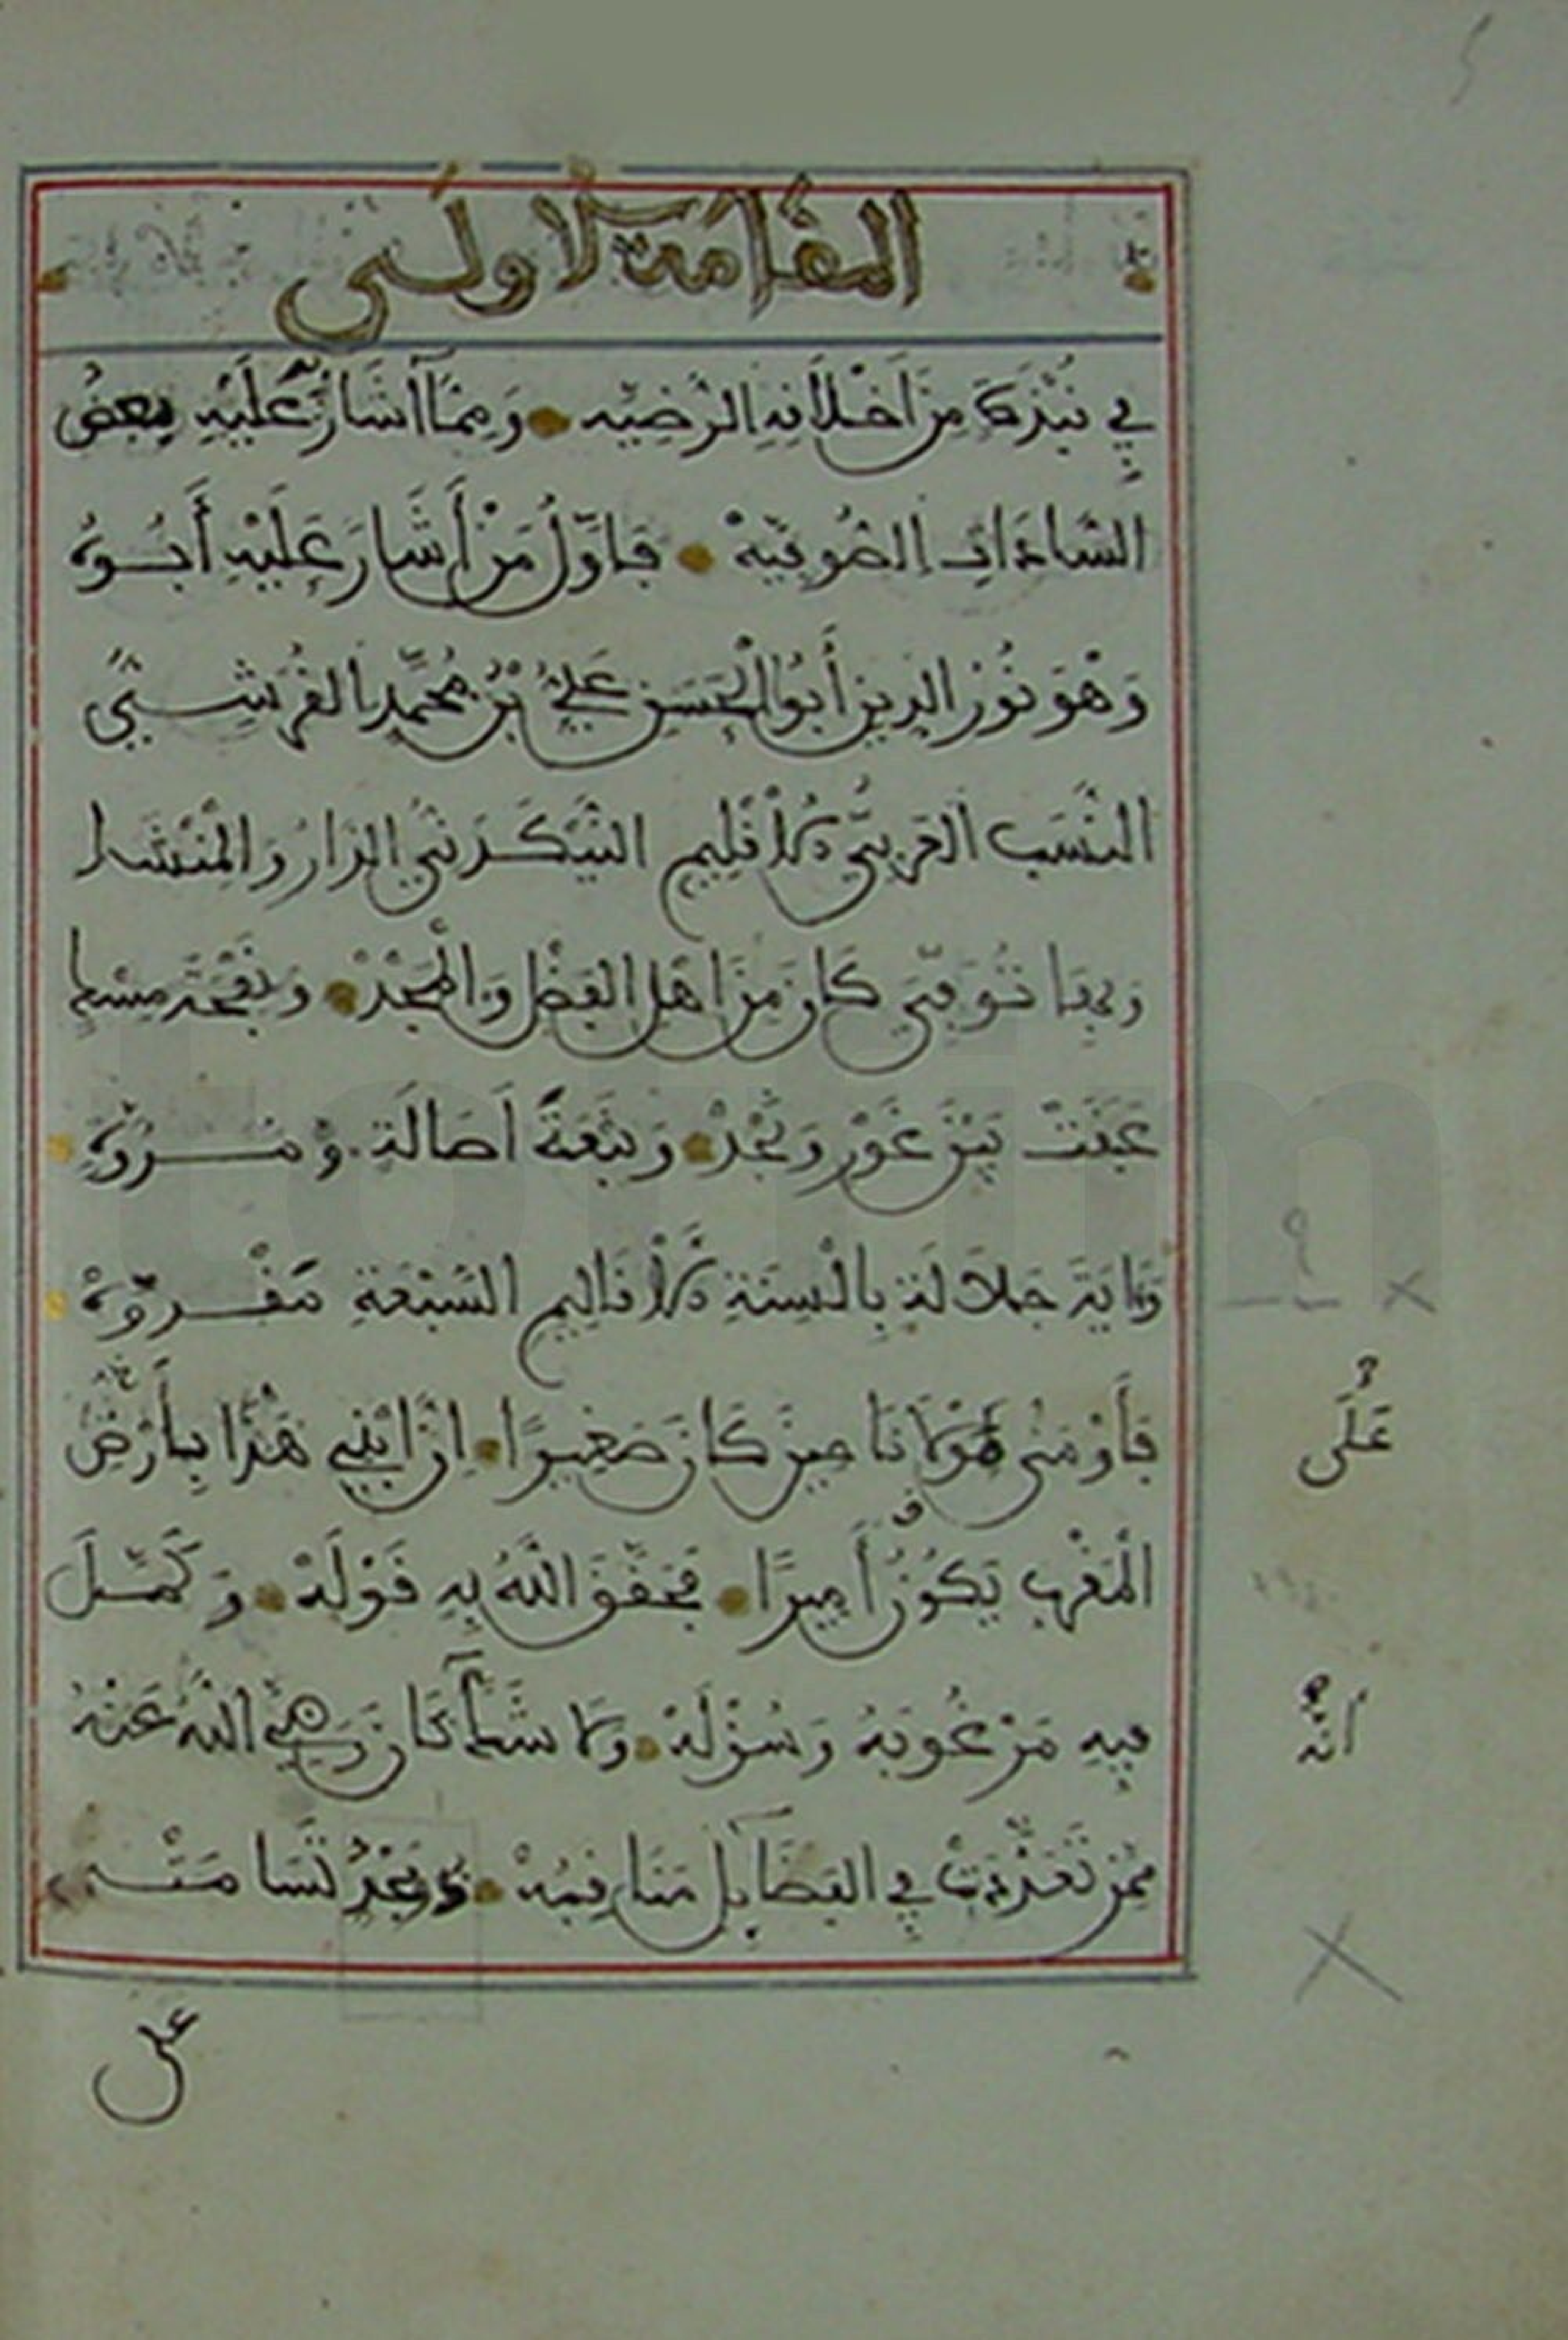 المقامة الاولى
في نبذة من اخلاقه الرضيه وممآ اشار عليه بعض
السادات الصوفيه فاول من أشار عليه أبوه
وهو نور الدين أبو الحسن علي بن محمد القرشي
النسب الغربي الاقليم الدار والمنشا
وبها توفي كان من اهل الفضل والمجد ونفحة مسك
عبقت بين غور ونجد ونبعة اصالة ومروه
واية جلالة بالسنة الاقاليم السبعة مقروه
فأومى مولانا حين كان صغيرا ان ابني هذا بأرض
على
المغرب يكون أميرا فحقق الله به قوله وكمل
فيه مرغوبه وسؤله وكما شاء كان رضي الله عنه
انه
ممن تعددت في الفضايل مناقبه وبعد تسامته
على